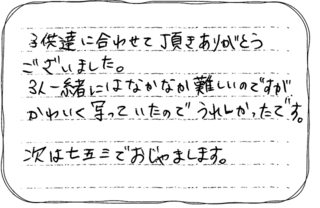 子供達に合わせて頂きありがとう
ございました。
3人一緒にはなかなか難しいのですが
かわいく写っていたのでうれしかったです。
次は七五三でおじゃまします。